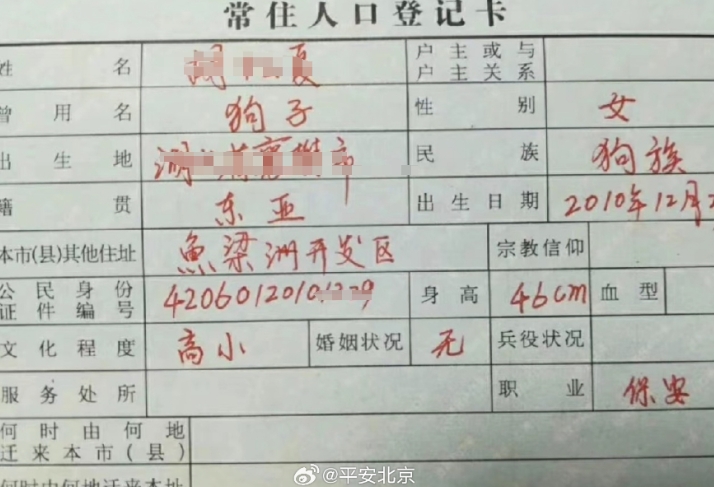 常住人口登记卡
姓名 夏 户主或与户主关系
曾用名 狗子 性别 女
出生地 市 民族 狗族
籍贯 东亚 出生日期 2010年12月2
本市(县)其他住址 魚梁洲开发区 宗教信仰
公民身份证件编号 4206012010 身高 46cm 血型
文化程度 高小 婚姻状况 无 兵役状况
服务处所 职业 保安
何时由何地迁来本市(县)
何时由何地迁来本址
@平安北京